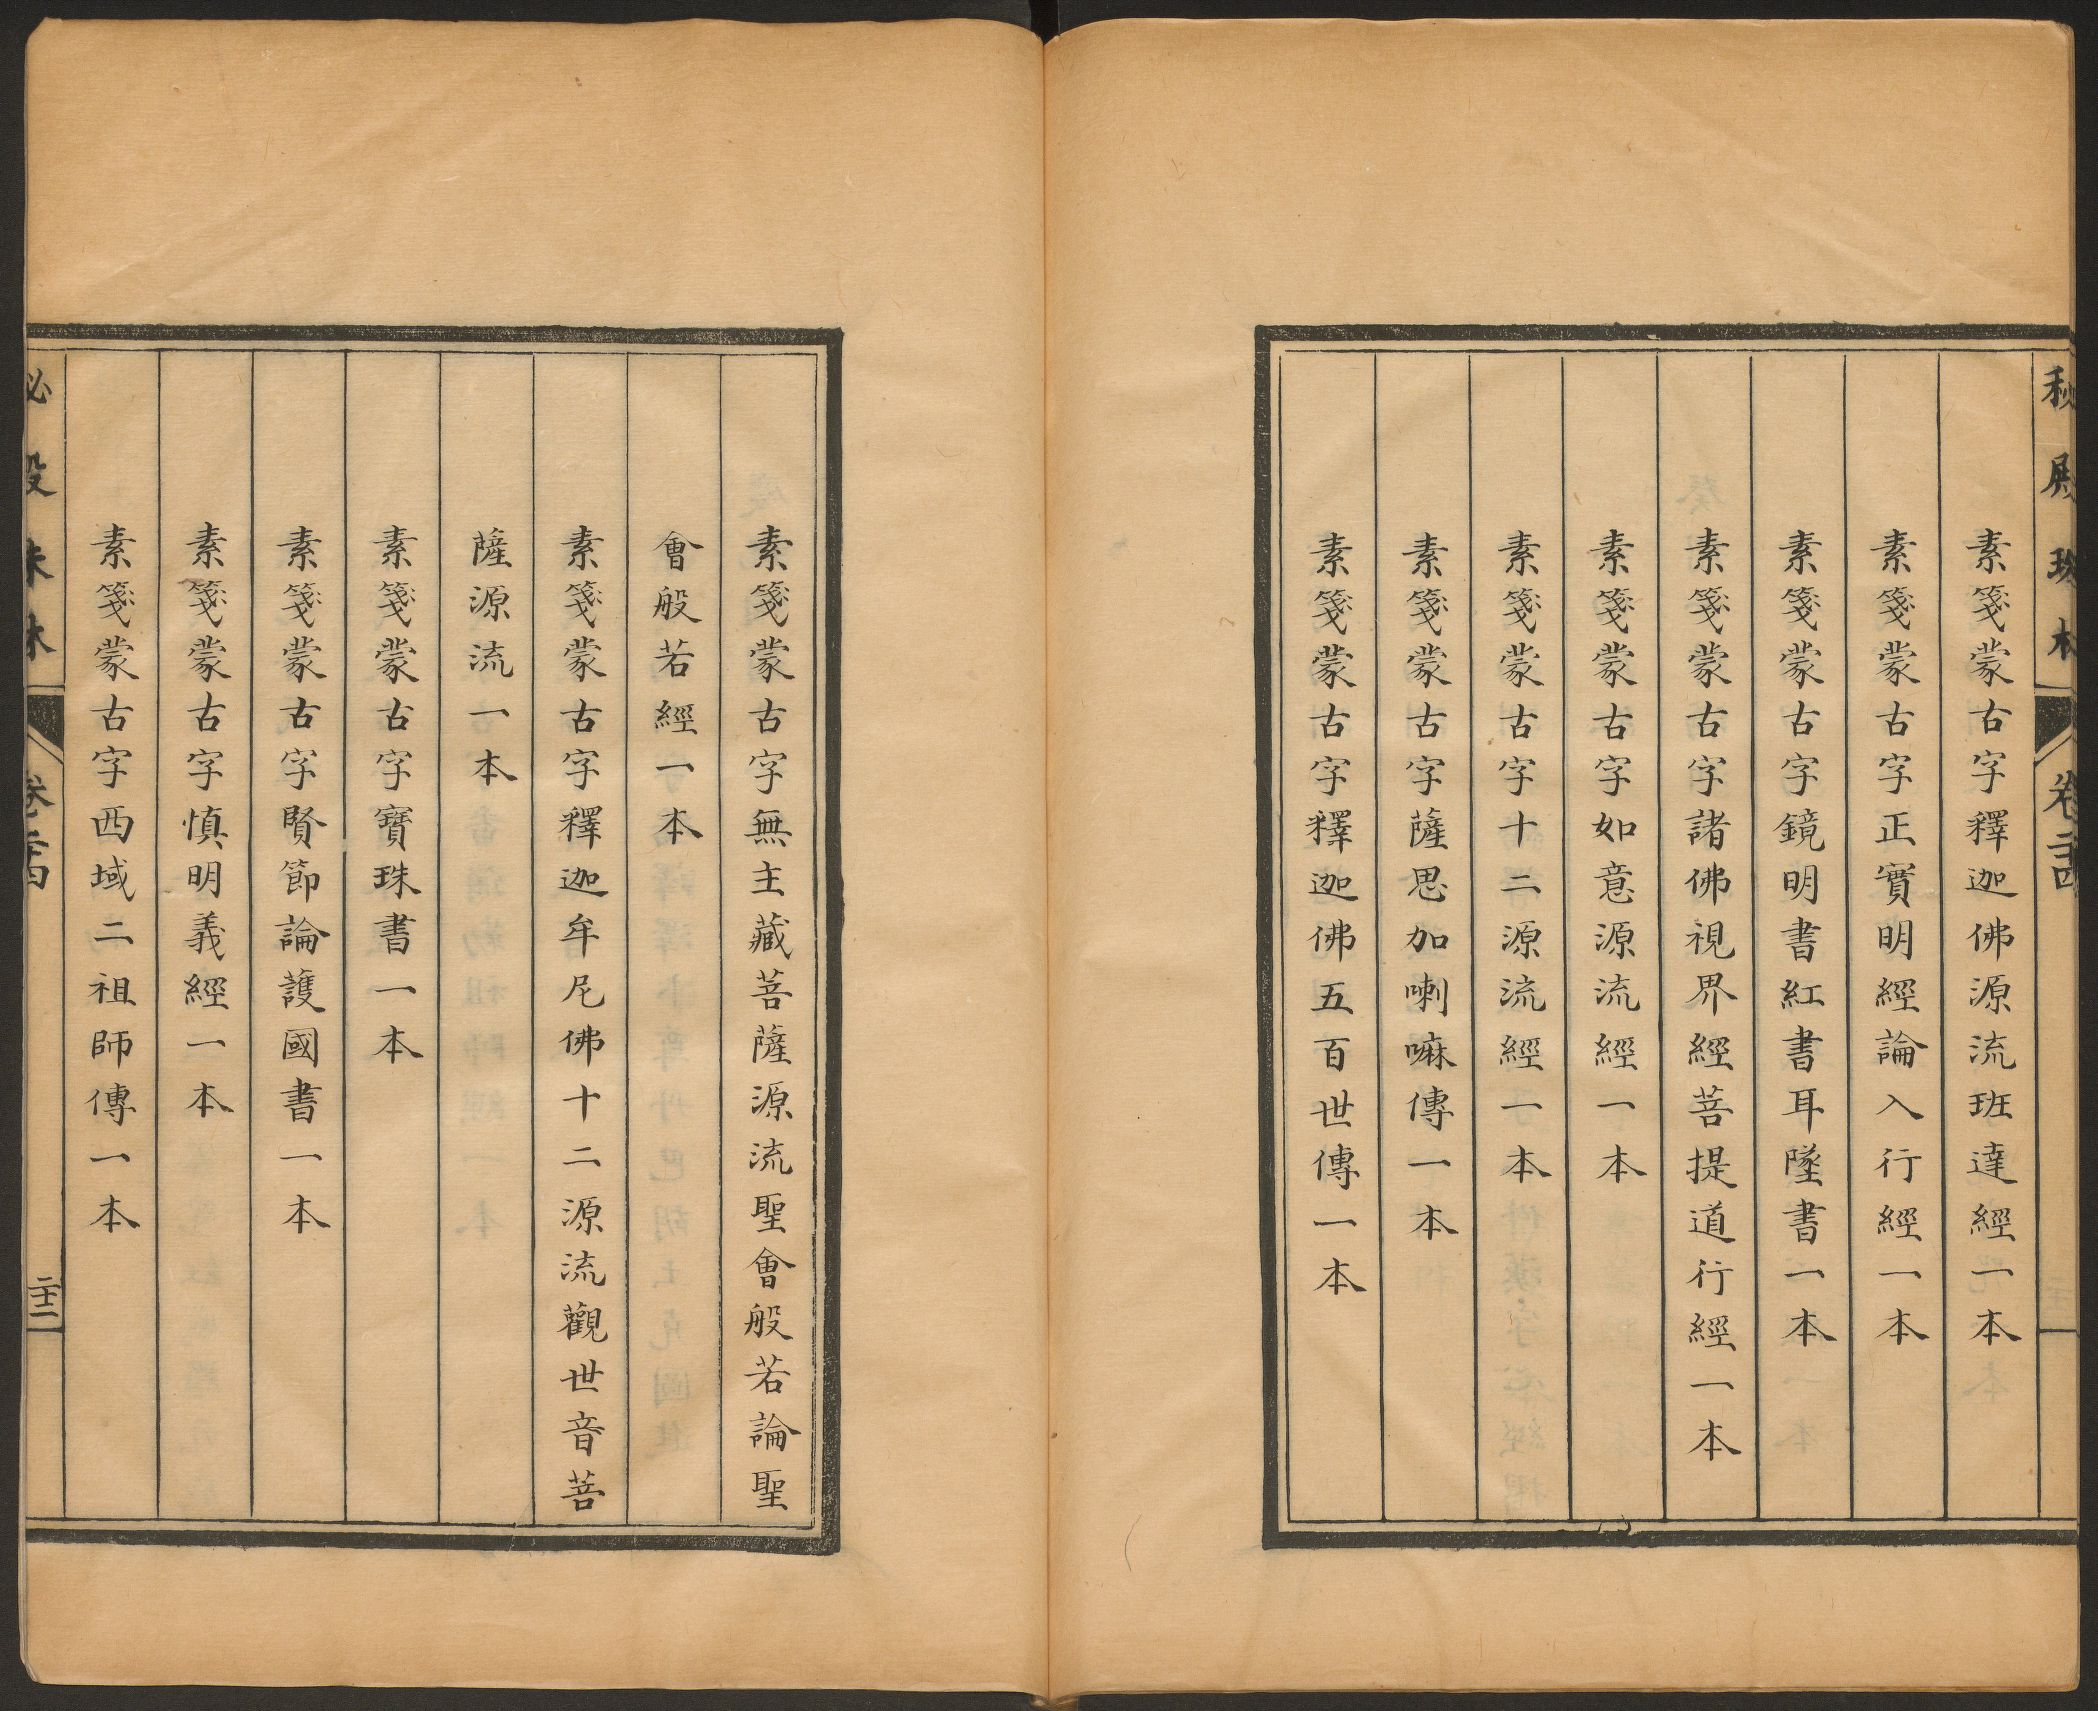 秘殿珠林
卷二十四
素箋蒙古字釋迦佛源流班達經一本
素箋蒙古字正實明經論入行經一本
素箋蒙古字鏡明書紅書耳墜書一本
素箋蒙古字諸佛視界經菩提道行經一本
素箋蒙古字如意源流經一本
素箋蒙古字十二源流經一本
素箋蒙古字薩思加喇嘛傳一本
素箋蒙古字釋迦佛五百世傳一本
素箋蒙古字無主藏菩薩源流聖會般若論聖
會般若經一本
素箋蒙古字釋迦牟尼佛十二源流觀世音菩
薩源流一本
素箋蒙古字寶珠書一本
素箋蒙古字賢節論護國書一本
素箋蒙古字慎明義經一本
素箋蒙古字西域二祖師傳一本
秘殿珠林
卷二十四
二十二